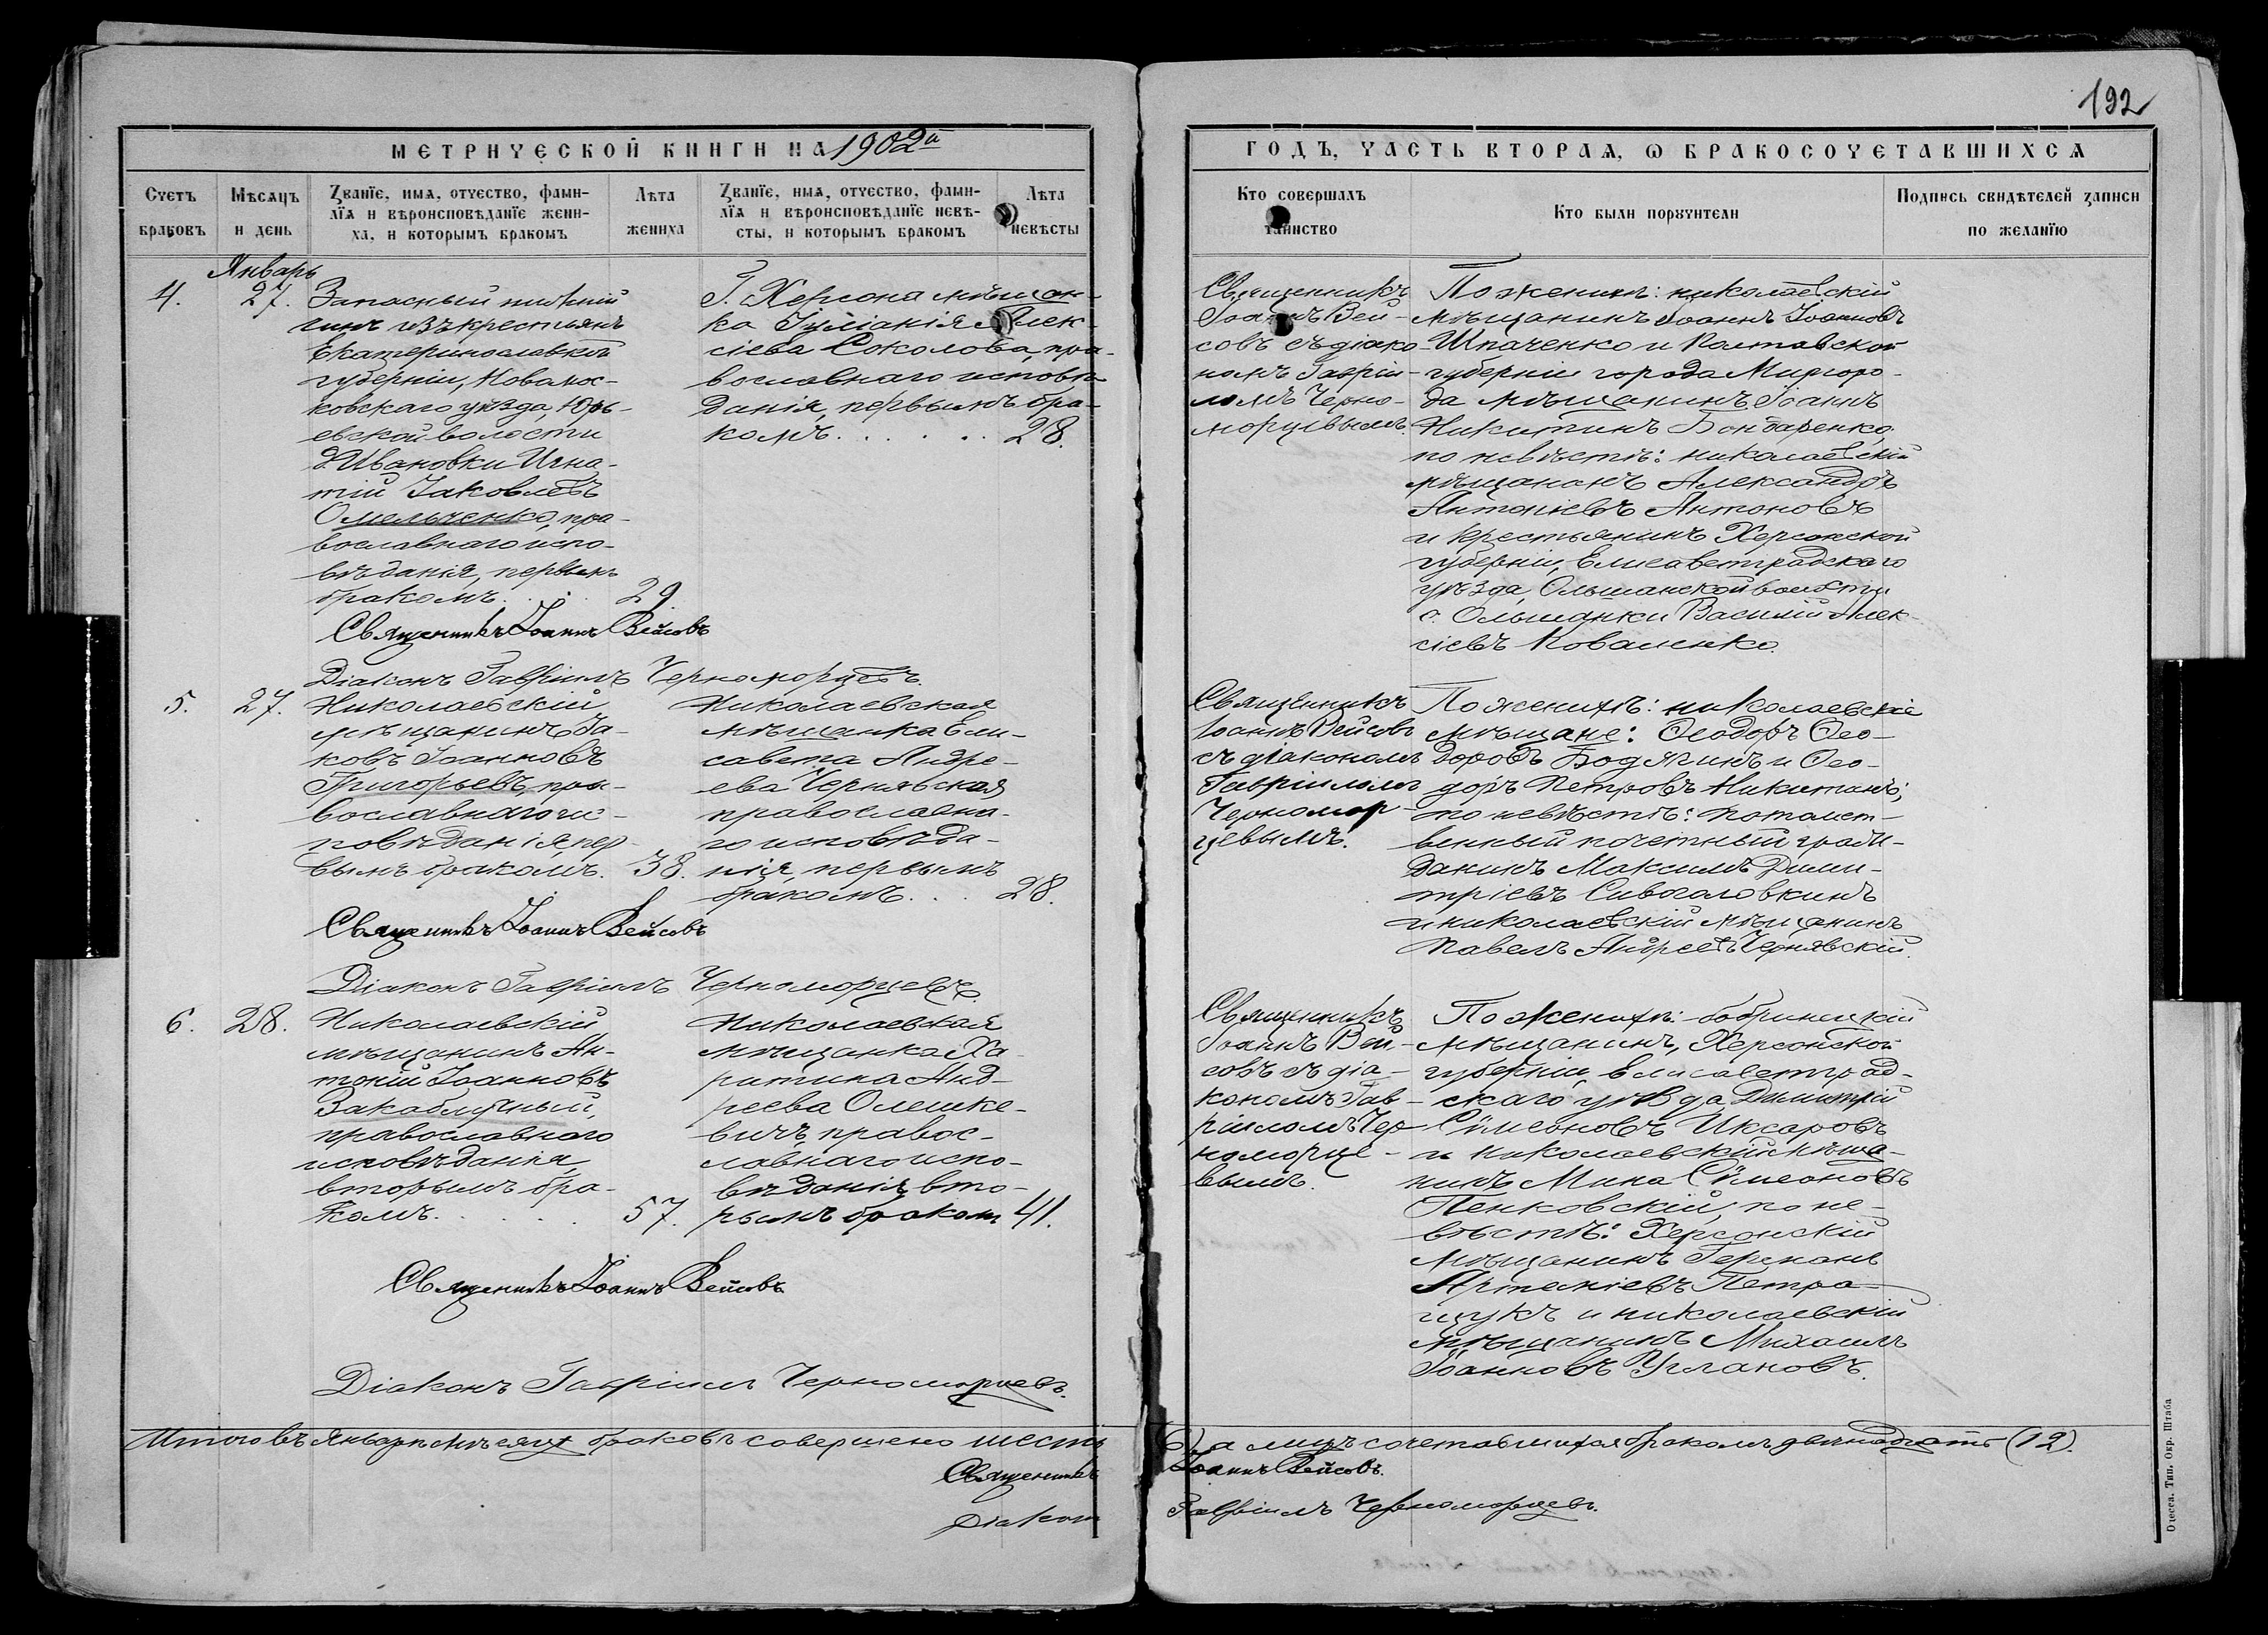 192
МЕТРИЧЕСКОЙ КНИГИ НА 1902й
ГОДЪ, ЧАСТЬ ВТОРАЯ, Ѡ БРАКОСОЧЕТАВШИХСЯ
Счетъ браковъ
Мѣсяцъ и день
Званїе, имя, отчество, фами-
лїя и вѣроисповѣданїе жени-
ха, и которымъ бракомъ
Лѣта жениха
Званїе, имя, отчество, фами-
лїя и вѣроисповѣданїе невѣ-
сты, и которымъ бракомъ
Лѣта невѣсты
Кто совершалъ таинство
Кто были порꙋчители
Подпись свидѣтелей записи
по желанїю
Январь
4. 27.
Запасный
чинъ изъ крестьянъ
Екатеринославской
губерніи, Новомос-
ковскаго уѣзда Юрь-
евской волости
д. Ивановки Игна-
тій Іаковлевъ
Омельченко, пра-
вославнаго испо-
вѣданія, первымъ
бракомъ. . . 29.
Г. Херсона мѣщан-
ка Іуліанія Алек-
сіева Соколова, пра-
вославнаго исповѣ-
данія, первымъ бра-
комъ. . . . . . 28.
Священникъ
Іоаннъ Вей-
совъ съ діако-
номъ Гавріи-
ломъ Черно-
морцевымъ.
По женихѣ: николаевскій
мѣщанинъ Іоаннъ Іоанновъ
Шпаченко и Полтавской
губерніи города Миргоро-
да мѣщанинъ Іоаннъ
Никитинъ Бондаренко,
по невѣстѣ: николаевскій
мѣщанинъ Александръ
Антоніевъ Антоновъ
и крестьянинъ Херсонской
губерніи, Елисаветградскаго
уѣзда, Ольшанской волости
с. Ольшанки Василій Алек-
сіевъ Коваленко.
Священникъ Іоаннъ Вейсовъ
Діаконъ Гавріилъ Черноморцевъ.
5. 27.
Николаевскій
мѣщанинъ Іа-
ковъ Іоанновъ
Григорьевъ, пра-
вославнаго ис-
повѣданія, пер-
вымъ бракомъ. 38.
Николаевская
мѣщанка Ели-
савета Андре-
ева Чернявская
православна-
го исповѣда-
нія, первымъ
бракомъ. . . 28.
Священникъ
Іоаннъ Вейсовъ
съ діакономъ
Гавріиломъ
Черномор-
цевымъ.
По женихѣ: николаевскіе
мѣщане: Ѳеодоръ Ѳео-
доровъ Бодягинъ и Ѳео-
доръ Петровъ Никитинъ;
по невѣстѣ: потомст-
венный почетный граж-
данинъ Максимъ Дими-
тріевъ Сивоголовкинъ
и николаевскій мѣщанинъ
Павелъ Андреевъ Чернявскій.
Священникъ Іоаннъ Вейсовъ
Діаконъ Гавріилъ Черноморцевъ.
6. 28.
Николаевскій
мѣщанинъ Ан-
тоній Іоанновъ
Закаблучный,
православнаго
исповѣданія,
вторымъ бра-
комъ. . . . . 57.
Николаевская
мѣщанка Ха-
ритина Анд-
реева Олешке-
вичъ, правос-
лавнаго испо-
вѣданія, вто-
рымъ бракомъ 41.
Священникъ
Іоаннъ Вей-
совъ съ діа-
кономъ Гав-
ріиломъ Чер-
номорце-
вымъ.
По женихѣ: бобринецкій
мѣщанинъ, Херсонской
губерніи, Елисаветград-
скаго уѣзда Димитрій
Сѵмеоновъ Иксаровъ
и николаевскій мѣща-
нинъ Мина Сѵмеоновъ
Пенковскій, по не-
вѣстѣ: Херсонскій
мѣщанинъ Германъ
Артеміевъ Петра-
щукъ и николаевскій
мѣщанинъ Михаилъ
Іоанновъ Углановъ.
Священникъ Іоаннъ Вейсовъ
Діаконъ Гавріилъ Черноморцевъ.
Итого въ Январѣ мѣсяцѣ браковъ совершено шесть (6), а лицъ сочетавшихся бракомъ двѣнадцать (12).
Священникъ Іоаннъ Вейсовъ.
Діаконъ Гавріилъ Черноморцевъ.
Одесса. Тип. Окр. Штаба